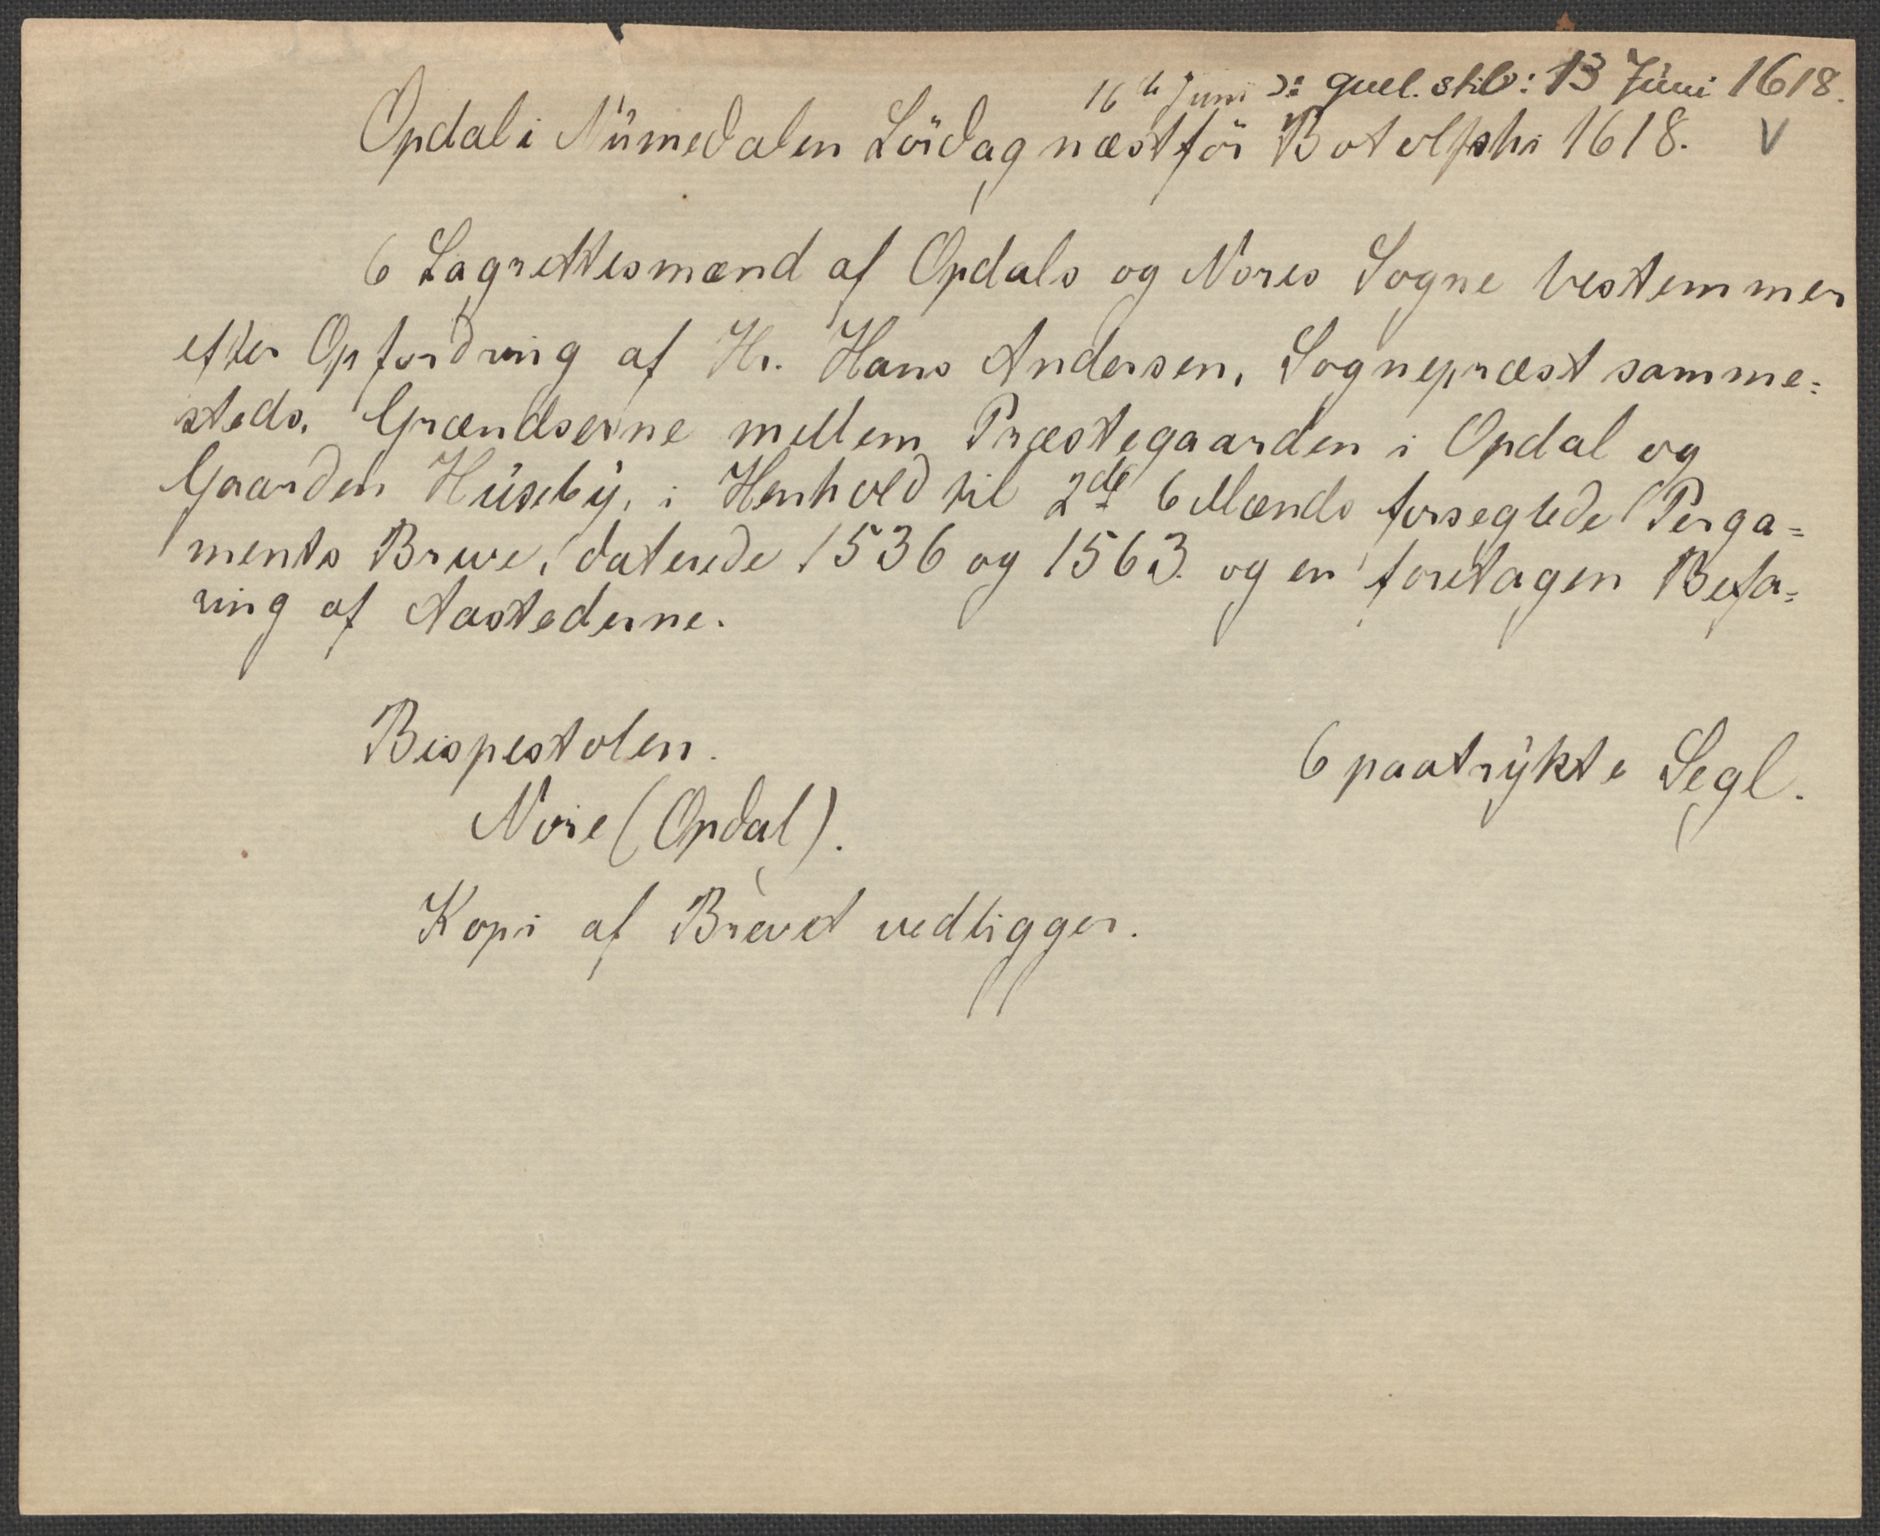 16 de Juni ɔ: guel. stilo: 13 Juni 1618.
Opdal i Numedalen Lördag næst för Botolfshi 1618. V
6 Lagrettesmænd af Opdals og Nores Sogne bestemmer
efter Opfordring af Hr. Hans Andersen, Sognepræst samme=
steds, Grændserne mellem Præstegaarden i Opdal og
Gaarden Huseby, i Henhold til 2de 6 Mænds forseglede Perga=
ments Breve, daterede 1536 og 1563 og en foretagen Befa=
ring af Aastederne.
Bispestolen.
6 paatrykte Segl.
Nore (Opdal).
Kopi af Brevet vedligger.